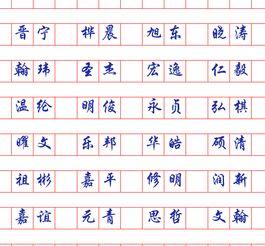 晋宁 桦晨 旭东 晓涛
翰玮 圣杰 宏逸 仁毅
温纶 明俊 永贞 弘棋
曜文 乐邦 华皓 硕清
祖彬 嘉平 修明 润新
嘉谊 元青 思哲 文翰